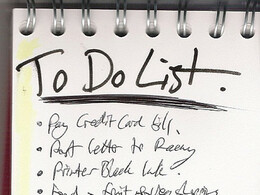 To Do List.
• Pay Credit Card bill.
• Post letter to
• Printer Black Ink.
• Food - fruit